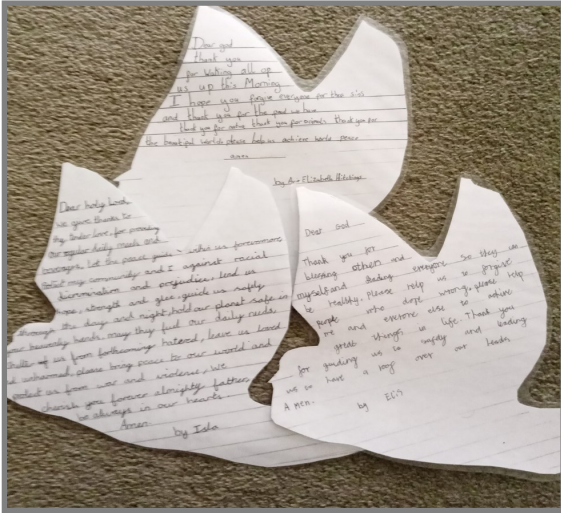 Dear god
thank you
for waking all of
us up this Morning
I hope you forgive everyone for the sins
and thank you for the food we have
thank you for nature thank you for animals thank you for
the beautiful world please help us achieve world peace
amen
by Elizabeth
Dear holy Lord
we give thanks to
thy tender love for providing
our regular daily meals and
beverages. Let the peace guide within us forevermore
my community and I against racial
discrimination and prejudice, lend us
strength and glee, guide us safely
through the day and night, hold our planet safe in
heavenly hands, may they fuel our daily needs,
of us from forthcoming hatred, leave us loved
unharmed, please bring peace to our world and
protect us from war and violence, we
cherish you forever almighty father
be always in our hearts
Amen
by Isla
Dear God
Thank you for
blessing others and
myself and everyone so they
be healthy, please help us to forgive
people who done wrong, please help
me and everyone else to achieve
great things in life Thank you
for guiding us so and leading
us to have a roof over our heads
A men.
by